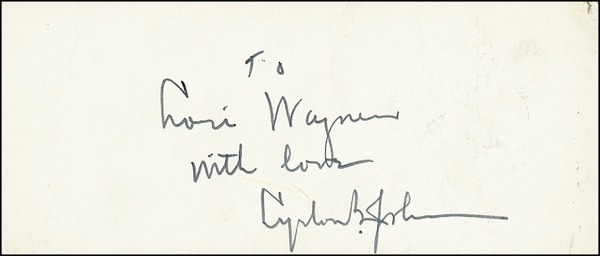 To
Lori Wagner
with love
Lyndon B. Johnson